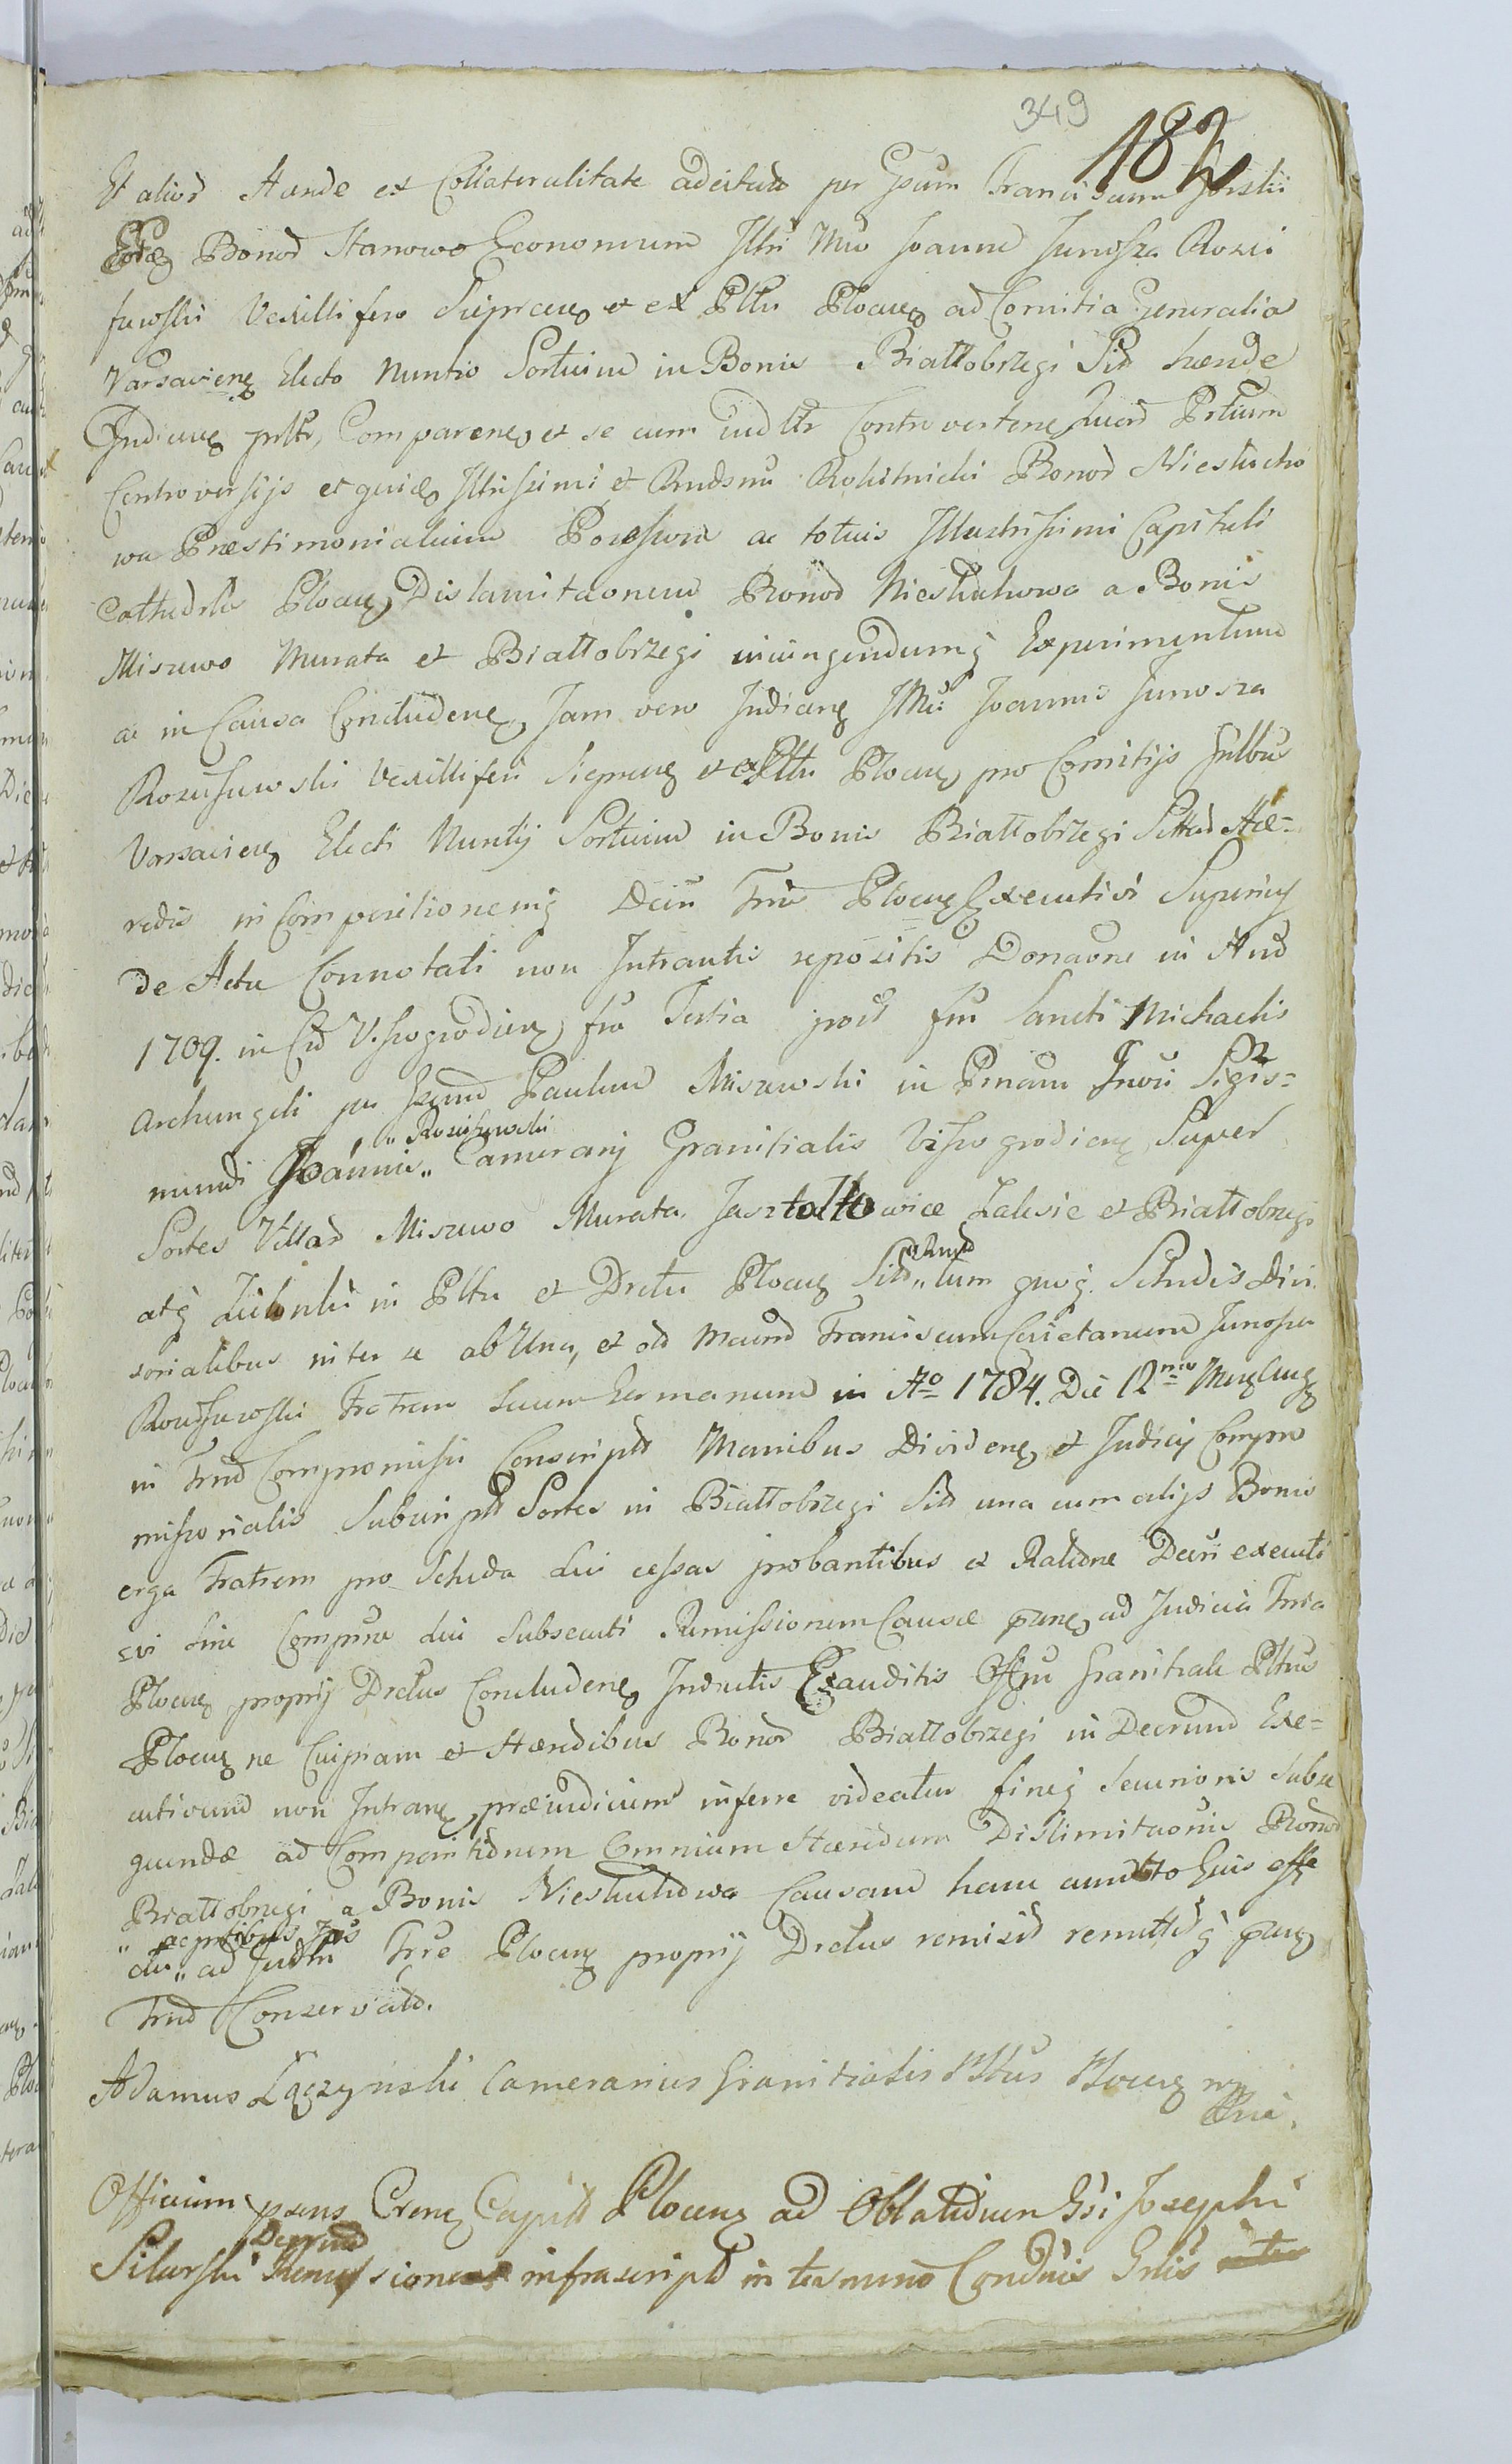 349
182
Et alior Hærede ex Collateralitate adcitato per Gsum Franciscum Gorskii
Bonor Stanowo Economum Illri Mco Joanne Junosza Rozci
szewski Vexillifero Sieprcens et ex Pltu Plocens ad Comitia Generalia
Varsaviens Electo Nuntio Sortium in Bonis Biattobrzegi Sit hærede
Judicens prltr, Comparens et se cum iudltr Controvertens Quar Prtium
Controversijs et quidem Illrissimi et Rndsmi Rokitnicki Bonor Nieslucho
wa Præstimonialium Possessoris ac totius Illustrissimi Capituli
Cathedrlis Plocens Dislimitaonem Bonor Niesluchowa a Bonis
Miszewo Murata et Biattobrzegi iniungendumq Experimentum
ac in Causa Concludens, Jam vero Judicens IMci Joannis Junosza
Rozciszewski Vexilliferi Sieprcens et ex Pltu Plocens pro Comitijs Gnlbus
Varsaviens Electi Nuntij Sortium in Bonis Biattobrzegi Sittar Hæ-
redis in Compositionemq Decri Trris Plocens Executivi Superins
de Actu Connotati non Intrantis repositis Donaone in Ano
1709. in Cto Vissogrodiens fra Tertia post ftu Sancti Michaelis
Archangeli per Gsum Paulum Miszewski in Prnam Gnosi Sigis-
mundi Joannis " Rosciszewski " Camerarij Granitialis Vissogrodiens Super
Sortes Villar Miszewo Murata Jasztołtowice Zalesie et Biattobrzegi
atq in Pltu et Drctu Plocens Sit " " tum quoq. Schedis Divi
sorialibus inter se ab Una, et olo Mcum Franciscum Caietanum Junosza
Rousszewski Fratrem Suum Germanum in Ao 1784. Die 12ma Mens Aug
in Trno Compromissi Conscriptt Manibus Dividens et Judicij Compro
missorialis Subscriptt Sortes in Biattobrzegi Sitt una cum alijs Bonis
erga Fratrem pro Scheda Sui cessas probantibus et Ratione Decri executi
vi Sine Comprne Sui Subsecuti Remissionem Causæ præns ad Judicia Trria
Plocens proprij Drctus Concludens Inductis Exauditis Offm Granitiale Pltus
Plocens ne Cuipiam ex Hæredibus Bonor Biattobrzegi in Decrum Exe-
cutivum non Intrans præiudicium inferre videatur fineq Securioris Subse
quendæ ad Comparitionem Omnium Hæredum Dislimitaonis Bonor
Biattobrzegi a Bonis Niesluchowa Causam hanc cum toto Eius effe
" ac prtibus Jpis
ctu " ad Judtu Trre Plocens proprij Drctus remisit remittitq præns
Trno Conservato.
Adamus Łączyński Camerarius Granitialis Pltus Plocens mp
Officium præns Crens Capitt Plocens ad Oblationem Gsi Josephi
Silurski Decrum Remissionis infrascriptt in termino Condnis Gnlis